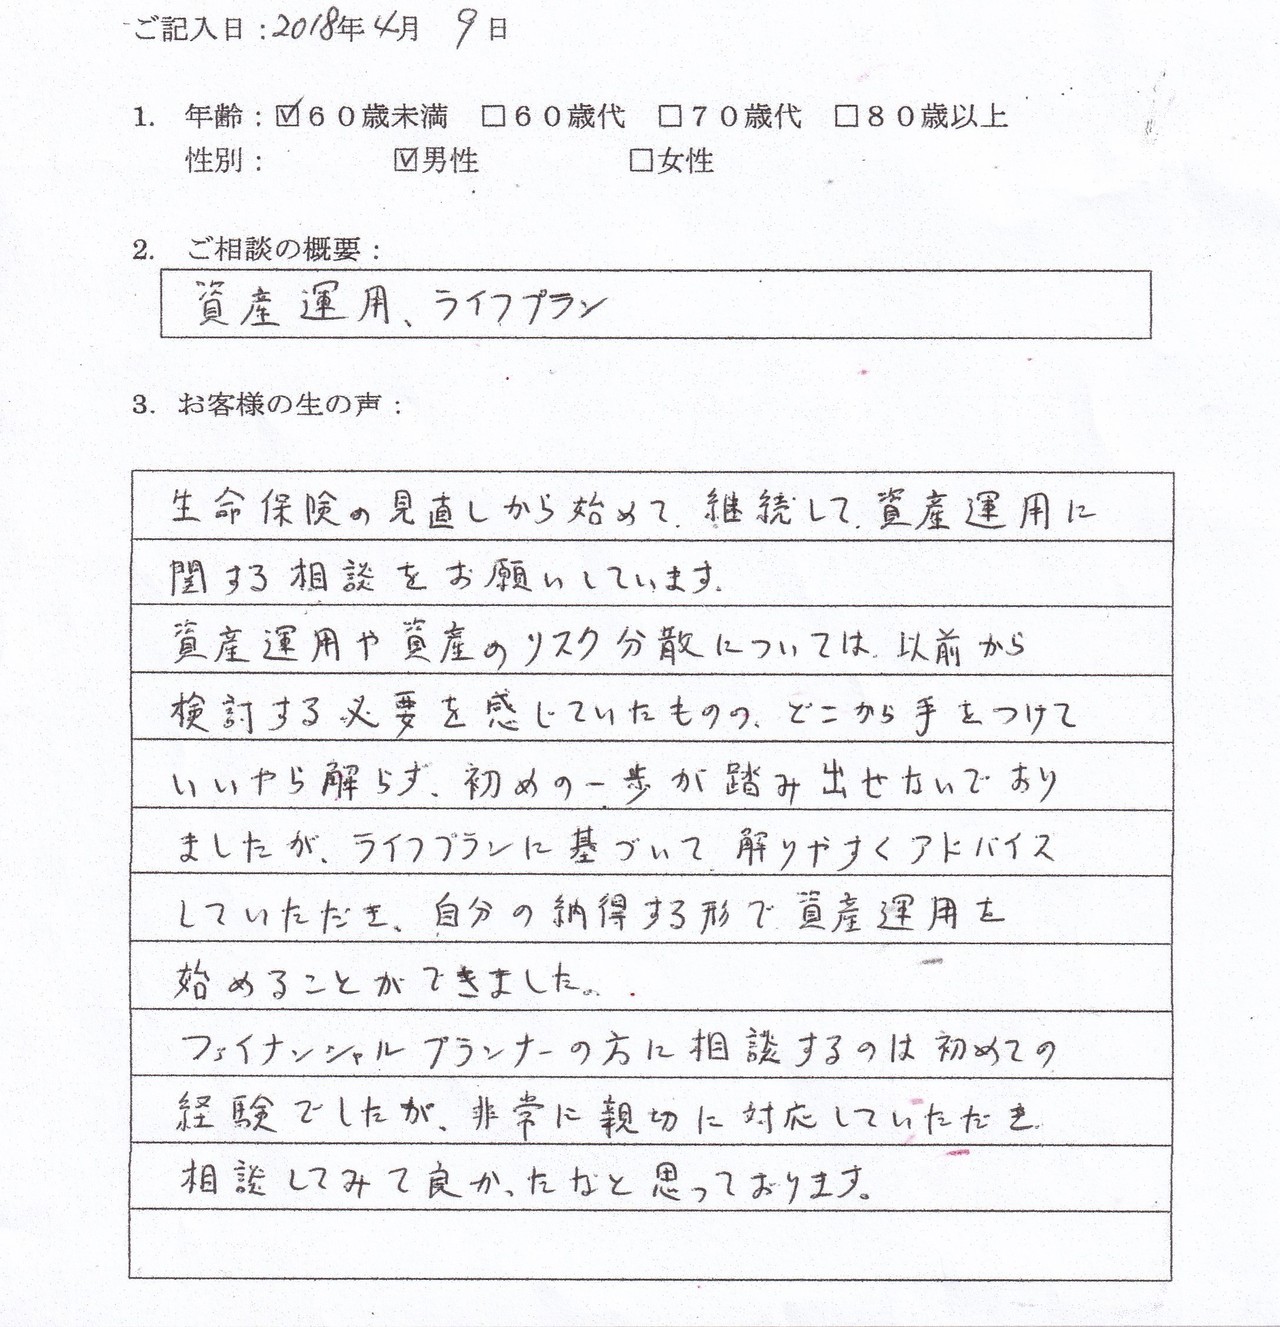 ご記入日：2018年4月 9日
1. 年齢：☑60歳未満 □60歳代 □70歳代 □80歳以上
性別： ☑男性 □女性
2. ご相談の概要：
資産運用、ライフプラン
3. お客様の生の声：
生命保険の見直しから始めて、継続して、資産運用に
関する相談をお願いしています。
資産運用や資産のリスク分散については、以前から
検討する必要を感じていたものの、どこから手をつけて
いいやら解らず、初めの一歩が踏み出せないでおり
ましたが、ライフプランに基づいて解りやすくアドバイス
していただき、自分の納得する形で資産運用を
始めることができました。
ファイナンシャルプランナーの方に相談するのは初めての
経験でしたが、非常に親切に対応していただき
相談してみて良かったなと思っております。